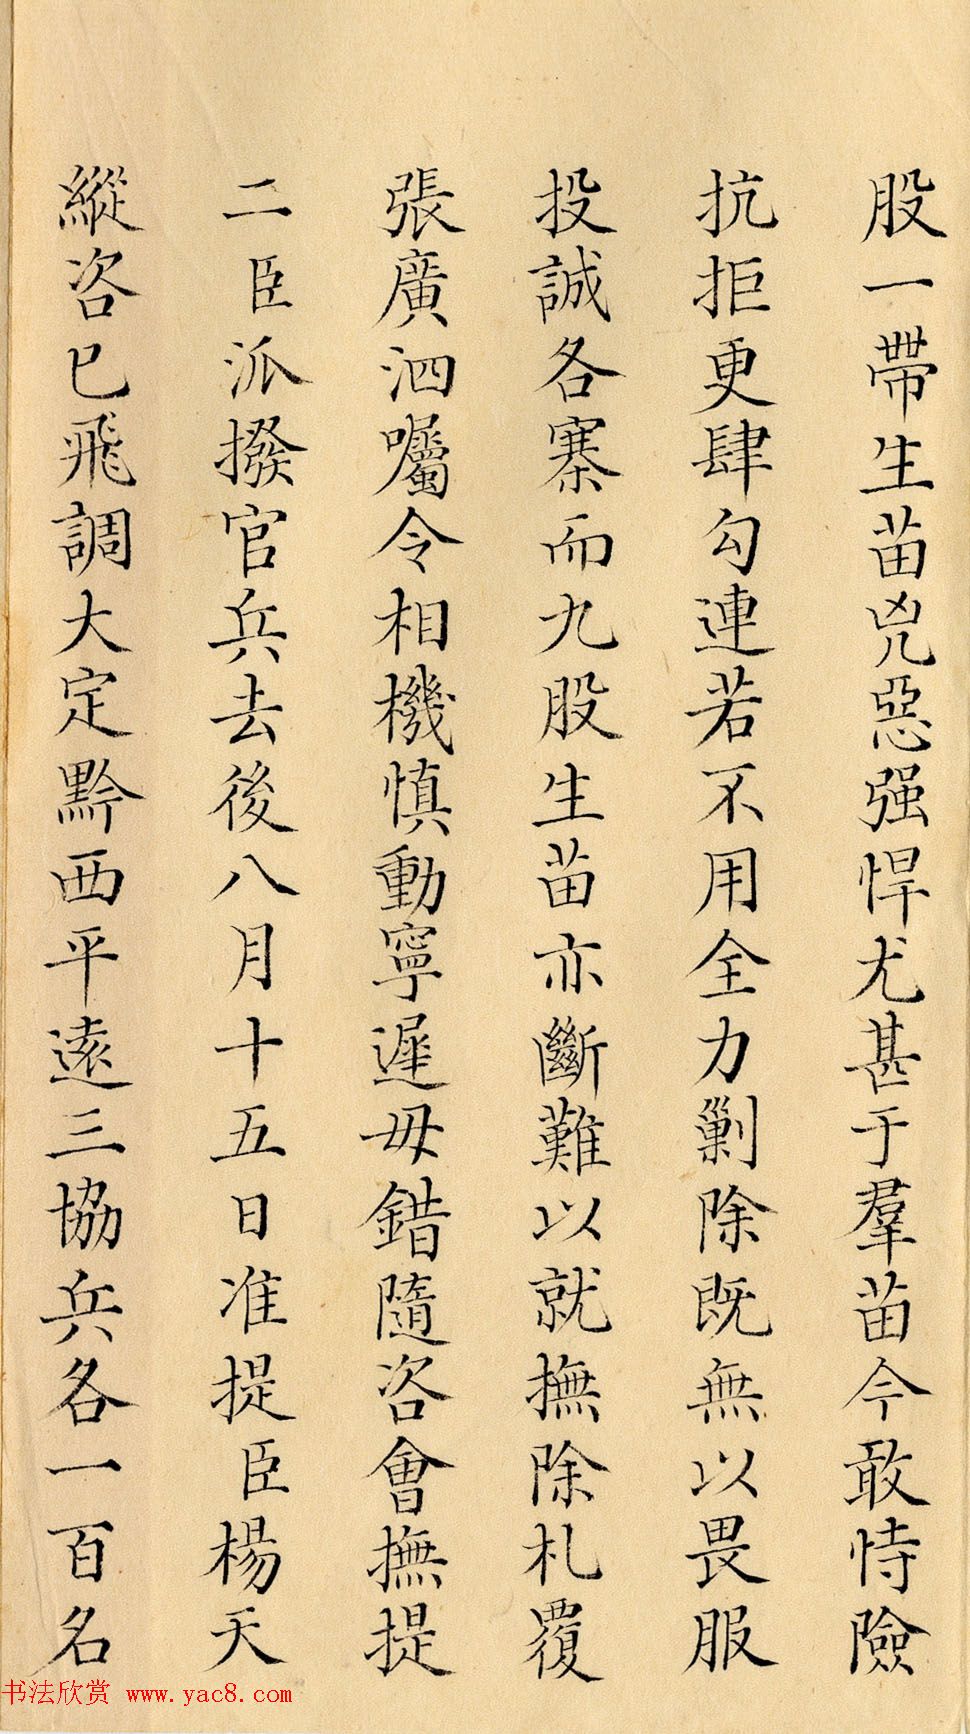 股一帶生苗兇惡强悍尤甚于羣苗今敢恃險
抗拒更肆勾連若不用全力剿除既無以畏服
投誠各寨而九股生苗亦斷難以就撫除札覆
張廣泗囑令相機慎動寧遲毋錯隨咨會撫提
二臣派撥官兵去後八月十五日准提臣楊天
縱咨已飛調大定黔西平遠三協兵各一百名
书法欣赏 www.yac8.com